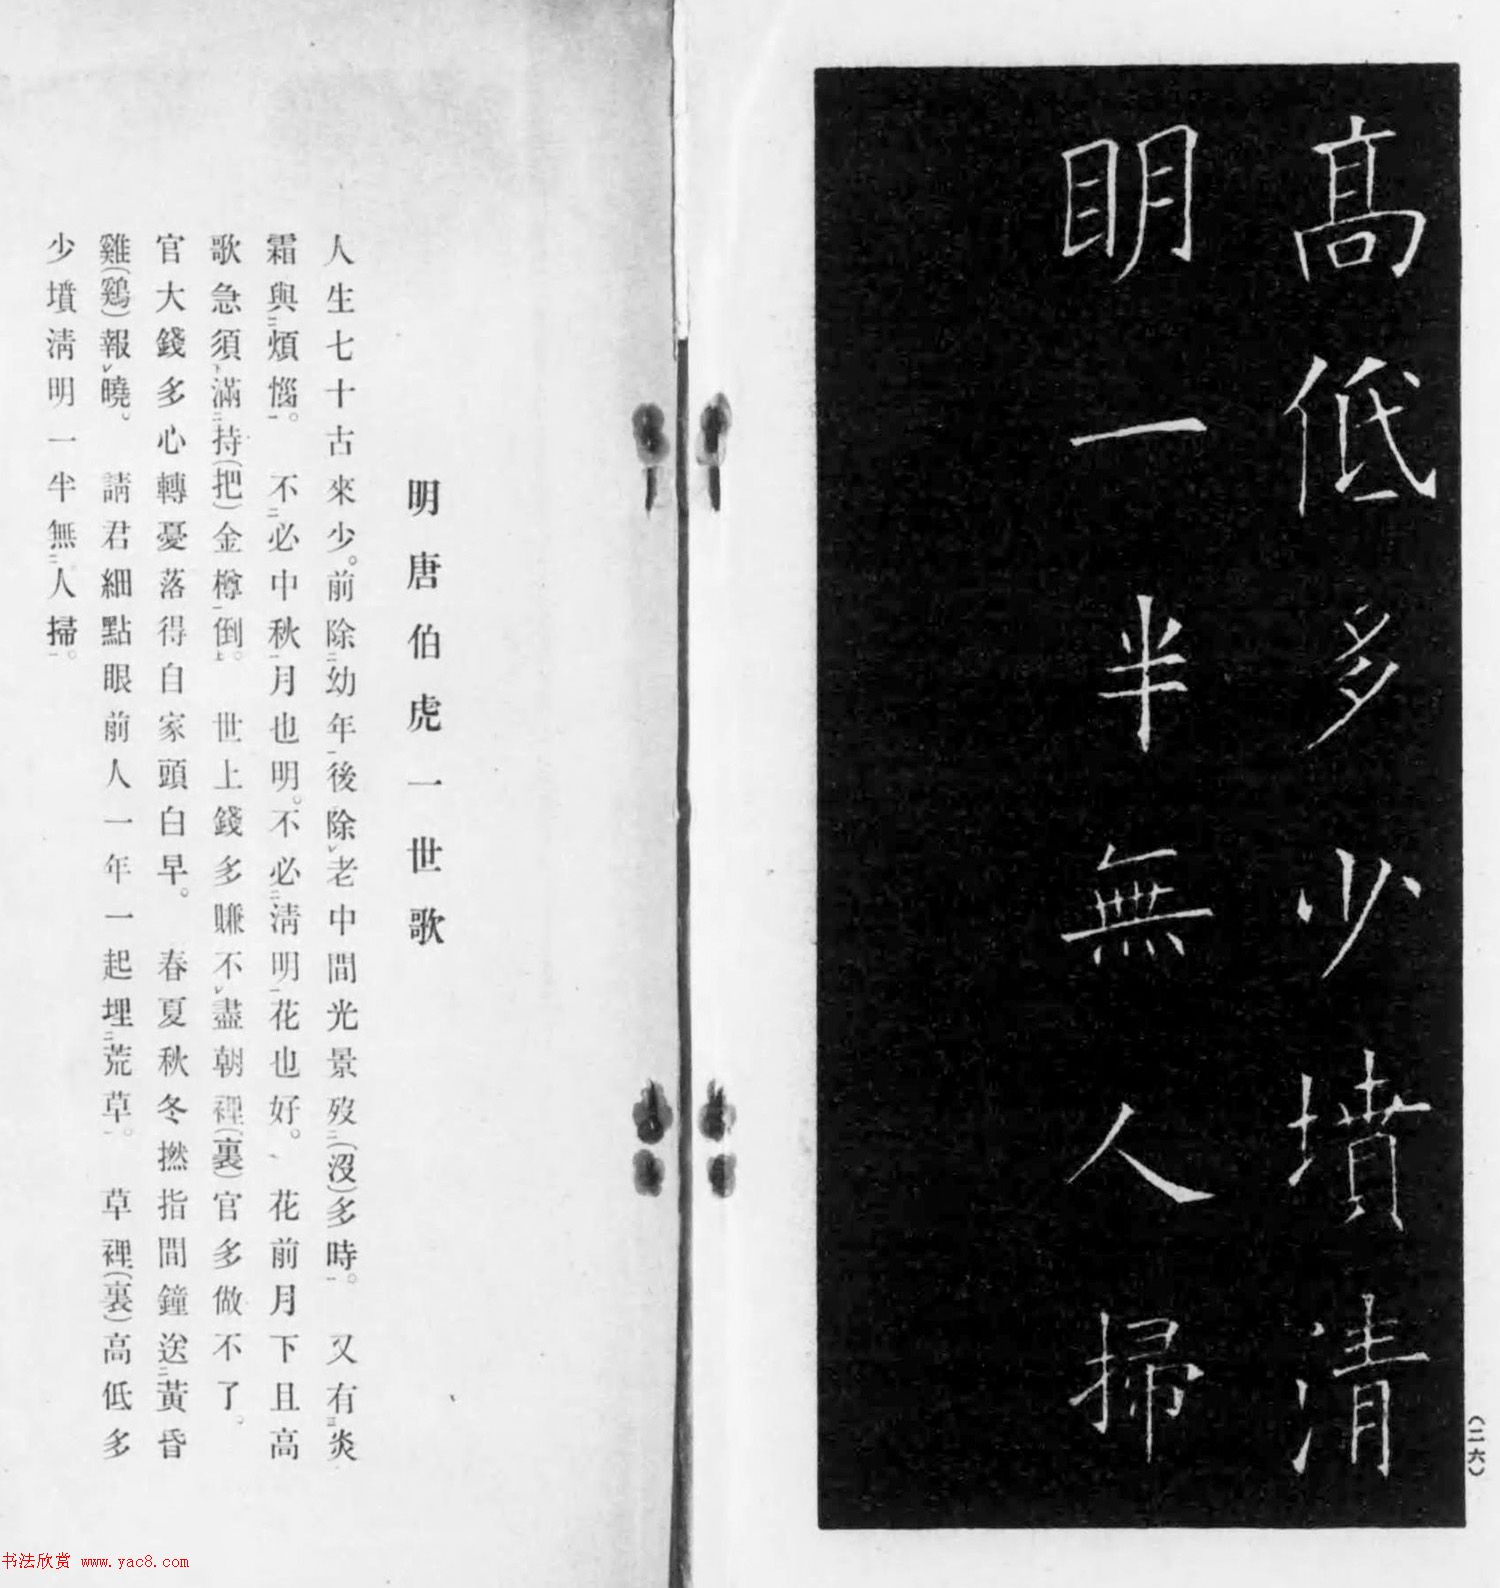 高低多少墳清
明一半無人掃
（二六）
明唐伯虎一世歌
人生七十古來少。前除幼年後除老中間光景歿(沒)多時。又有炎
霜與煩惱。不必中秋月也明。不必淸明花也好。花前月下且高
歌急須滿持(把)金樽倒。世上錢多賺不盡朝裡(裏)官多做不了。
官大錢多心轉憂落得自家頭白早。春夏秋冬撚指間鐘送黃昏
雞(鷄)報曉。請君細點眼前人一年一起埋荒草。草裡(裏)高低多
少墳淸明一半無人掃。
书法欣赏 www.yac8.com